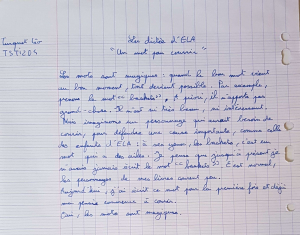 Turquet Léo
TSTI2D5
Les dictée d'ELA
"Un mot pour courir"
Les mots sont magiques : quand le bon mot vient
au bon moment, tout devient possible. Par exemple,
prenons le mot « baskets ». A priori, il n'apporte pas
grand-chose. Il n'est ni très beau, ni intéressant.
Mais imaginons un personnage qui aurait besoin de
courir, pour défendre une cause importante, comme celle
des enfants d'ELA : à ses yeux, les baskets, c'est un
mot qui a des ailes. Je pense que jusqu'à présent je
n'avais jamais écrit le mot « baskets ». C'est normal,
les personnages de mes livres courent peu.
Aujourd'hui, j'ai écrit ce mot pour la première fois et déjà
un genou commence à courir.
Oui, les mots sont magiques.